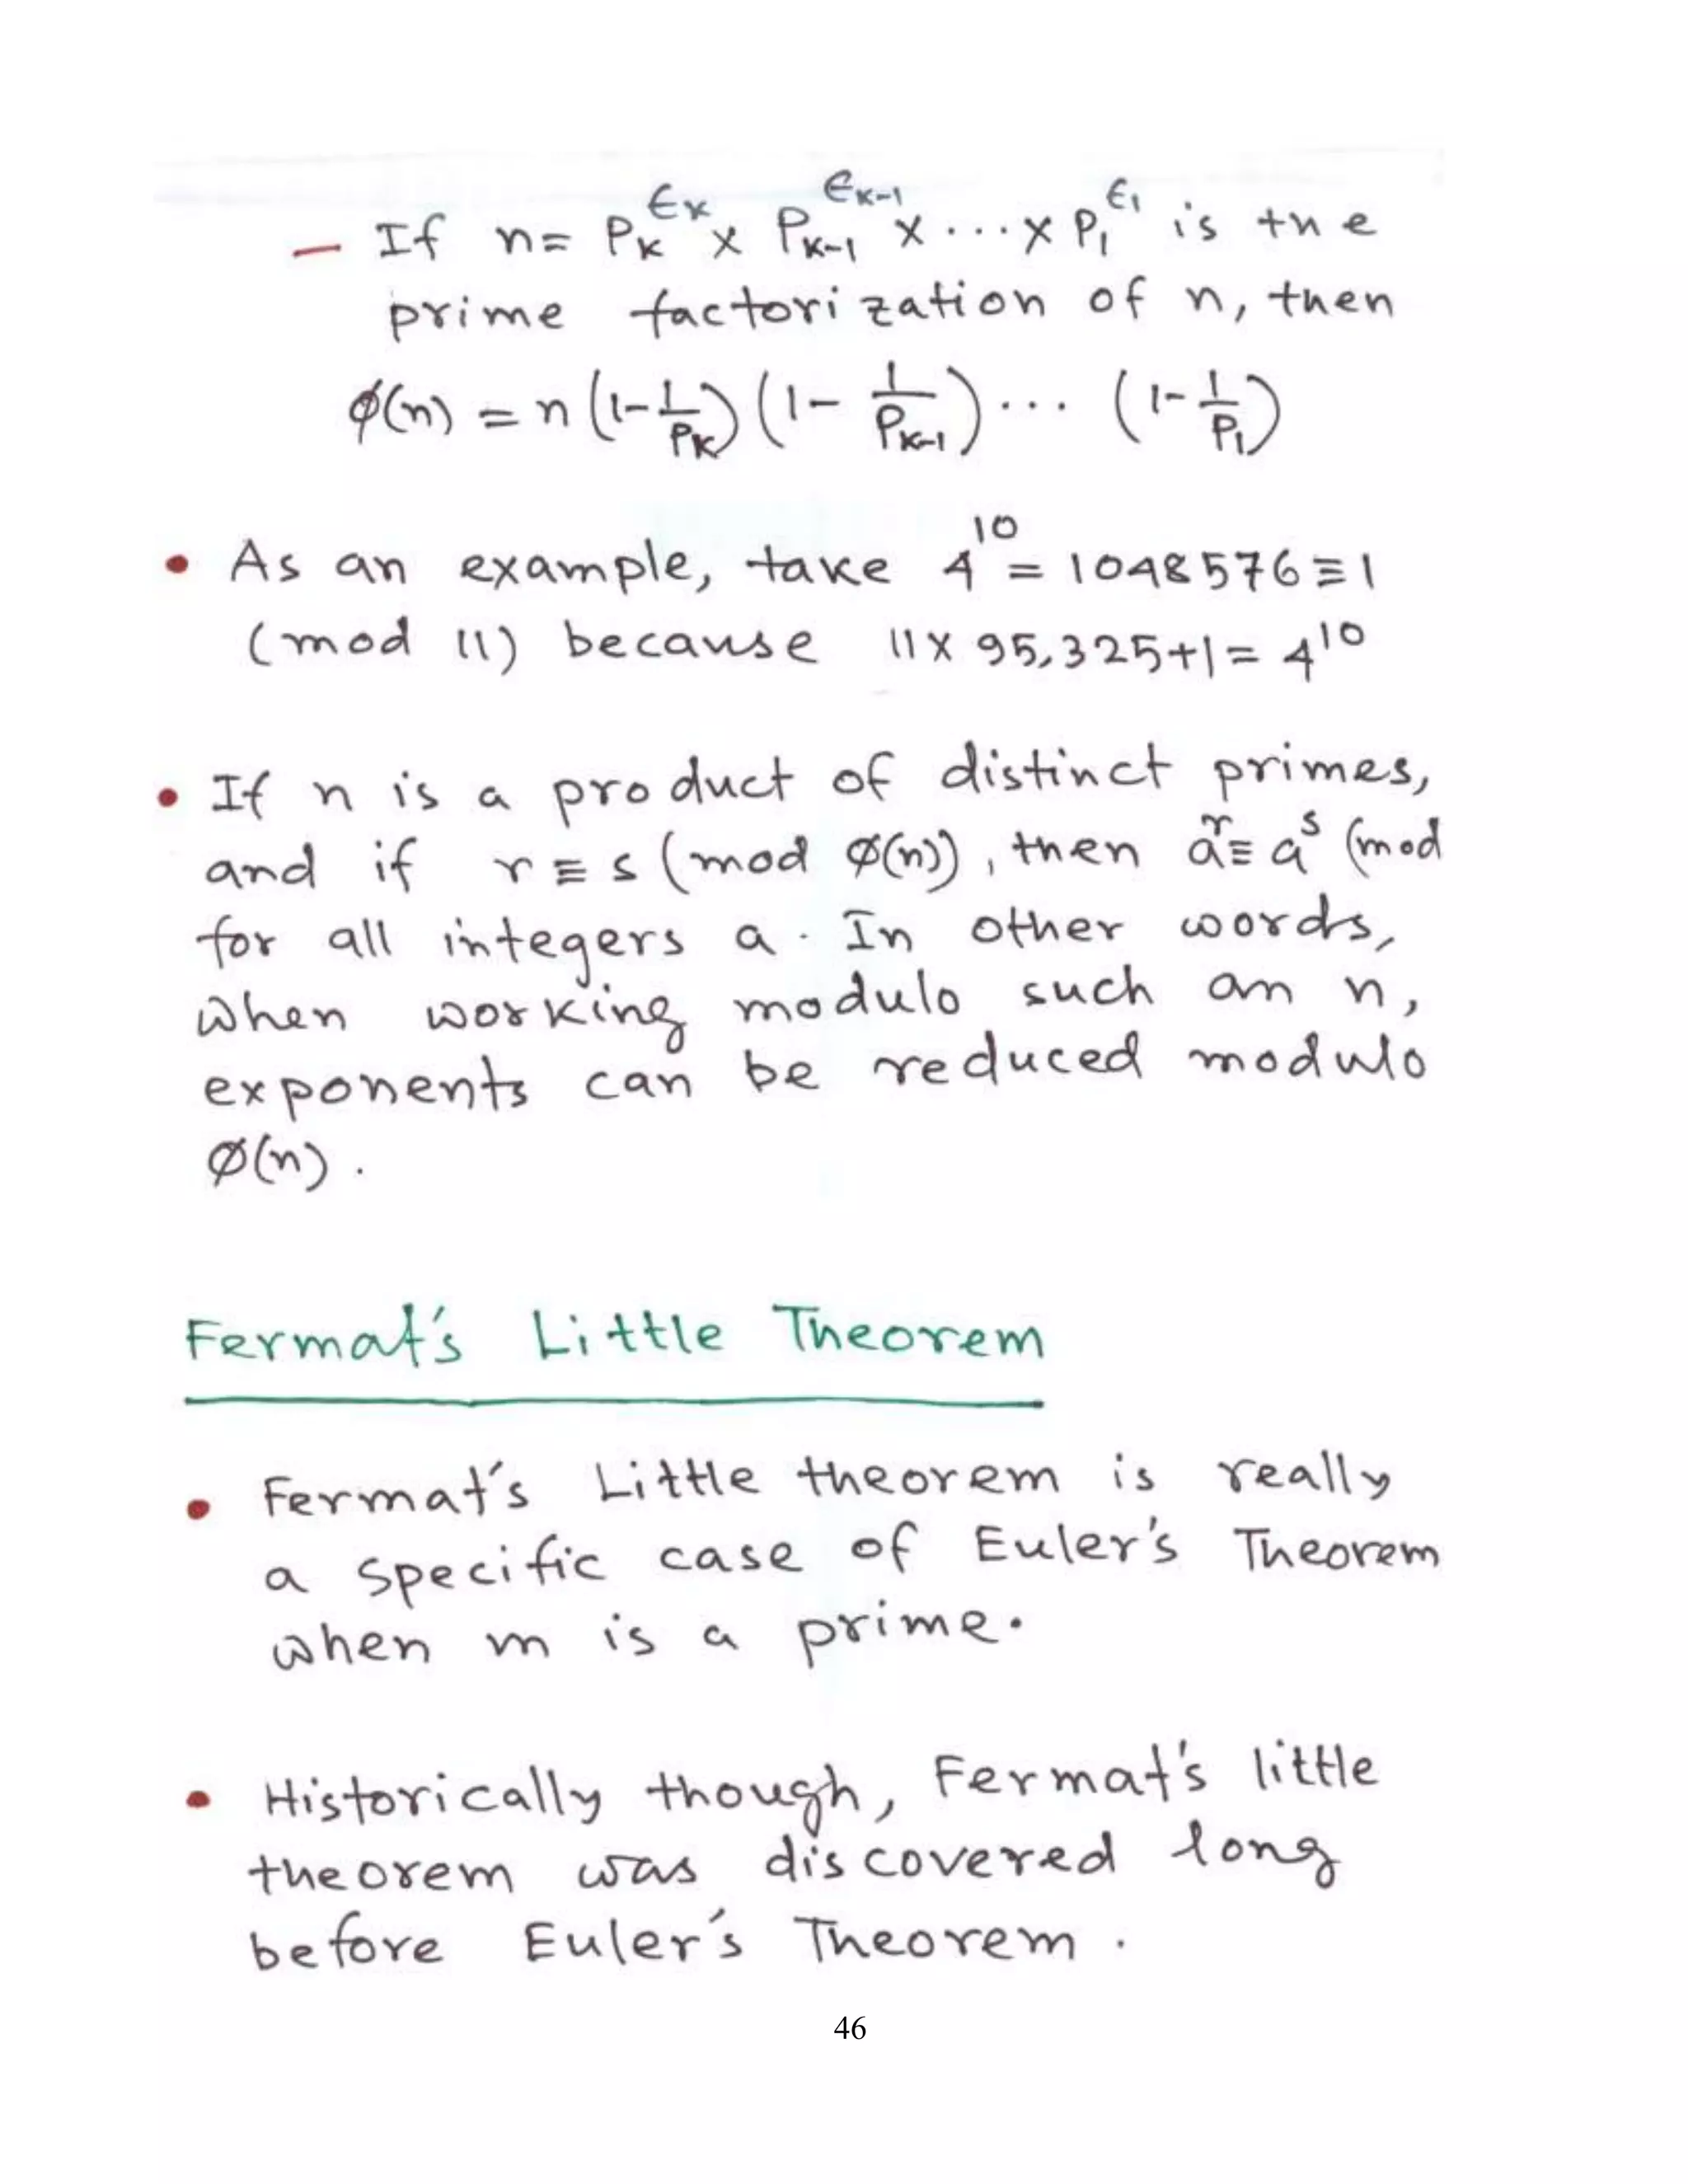 — If n = P_K^{ϵ_K} × P_{K-1}^{ϵ_{K-1}} × ... × P_1^{ϵ_1} is the
prime factorization of n, then
φ(n) = n (1 - 1/P_K) (1 - 1/P_{K-1}) ... (1 - 1/P_1)
• As an example, take 4^{10} = 1048576 ≡ 1
(mod 11) because 11 × 95,325 + 1 = 4^{10}
• If n is a product of distinct primes,
and if r ≡ s (mod φ(n)), then a^r ≡ a^s (mod
for all integers a. In other words,
when working modulo such an n,
exponents can be reduced modulo
φ(n).
Fermat's Little Theorem
• Fermat's Little theorem is really
a specific case of Euler's Theorem
when m is a prime.
• Historically though, Fermat's little
theorem was discovered long
before Euler's Theorem.
46